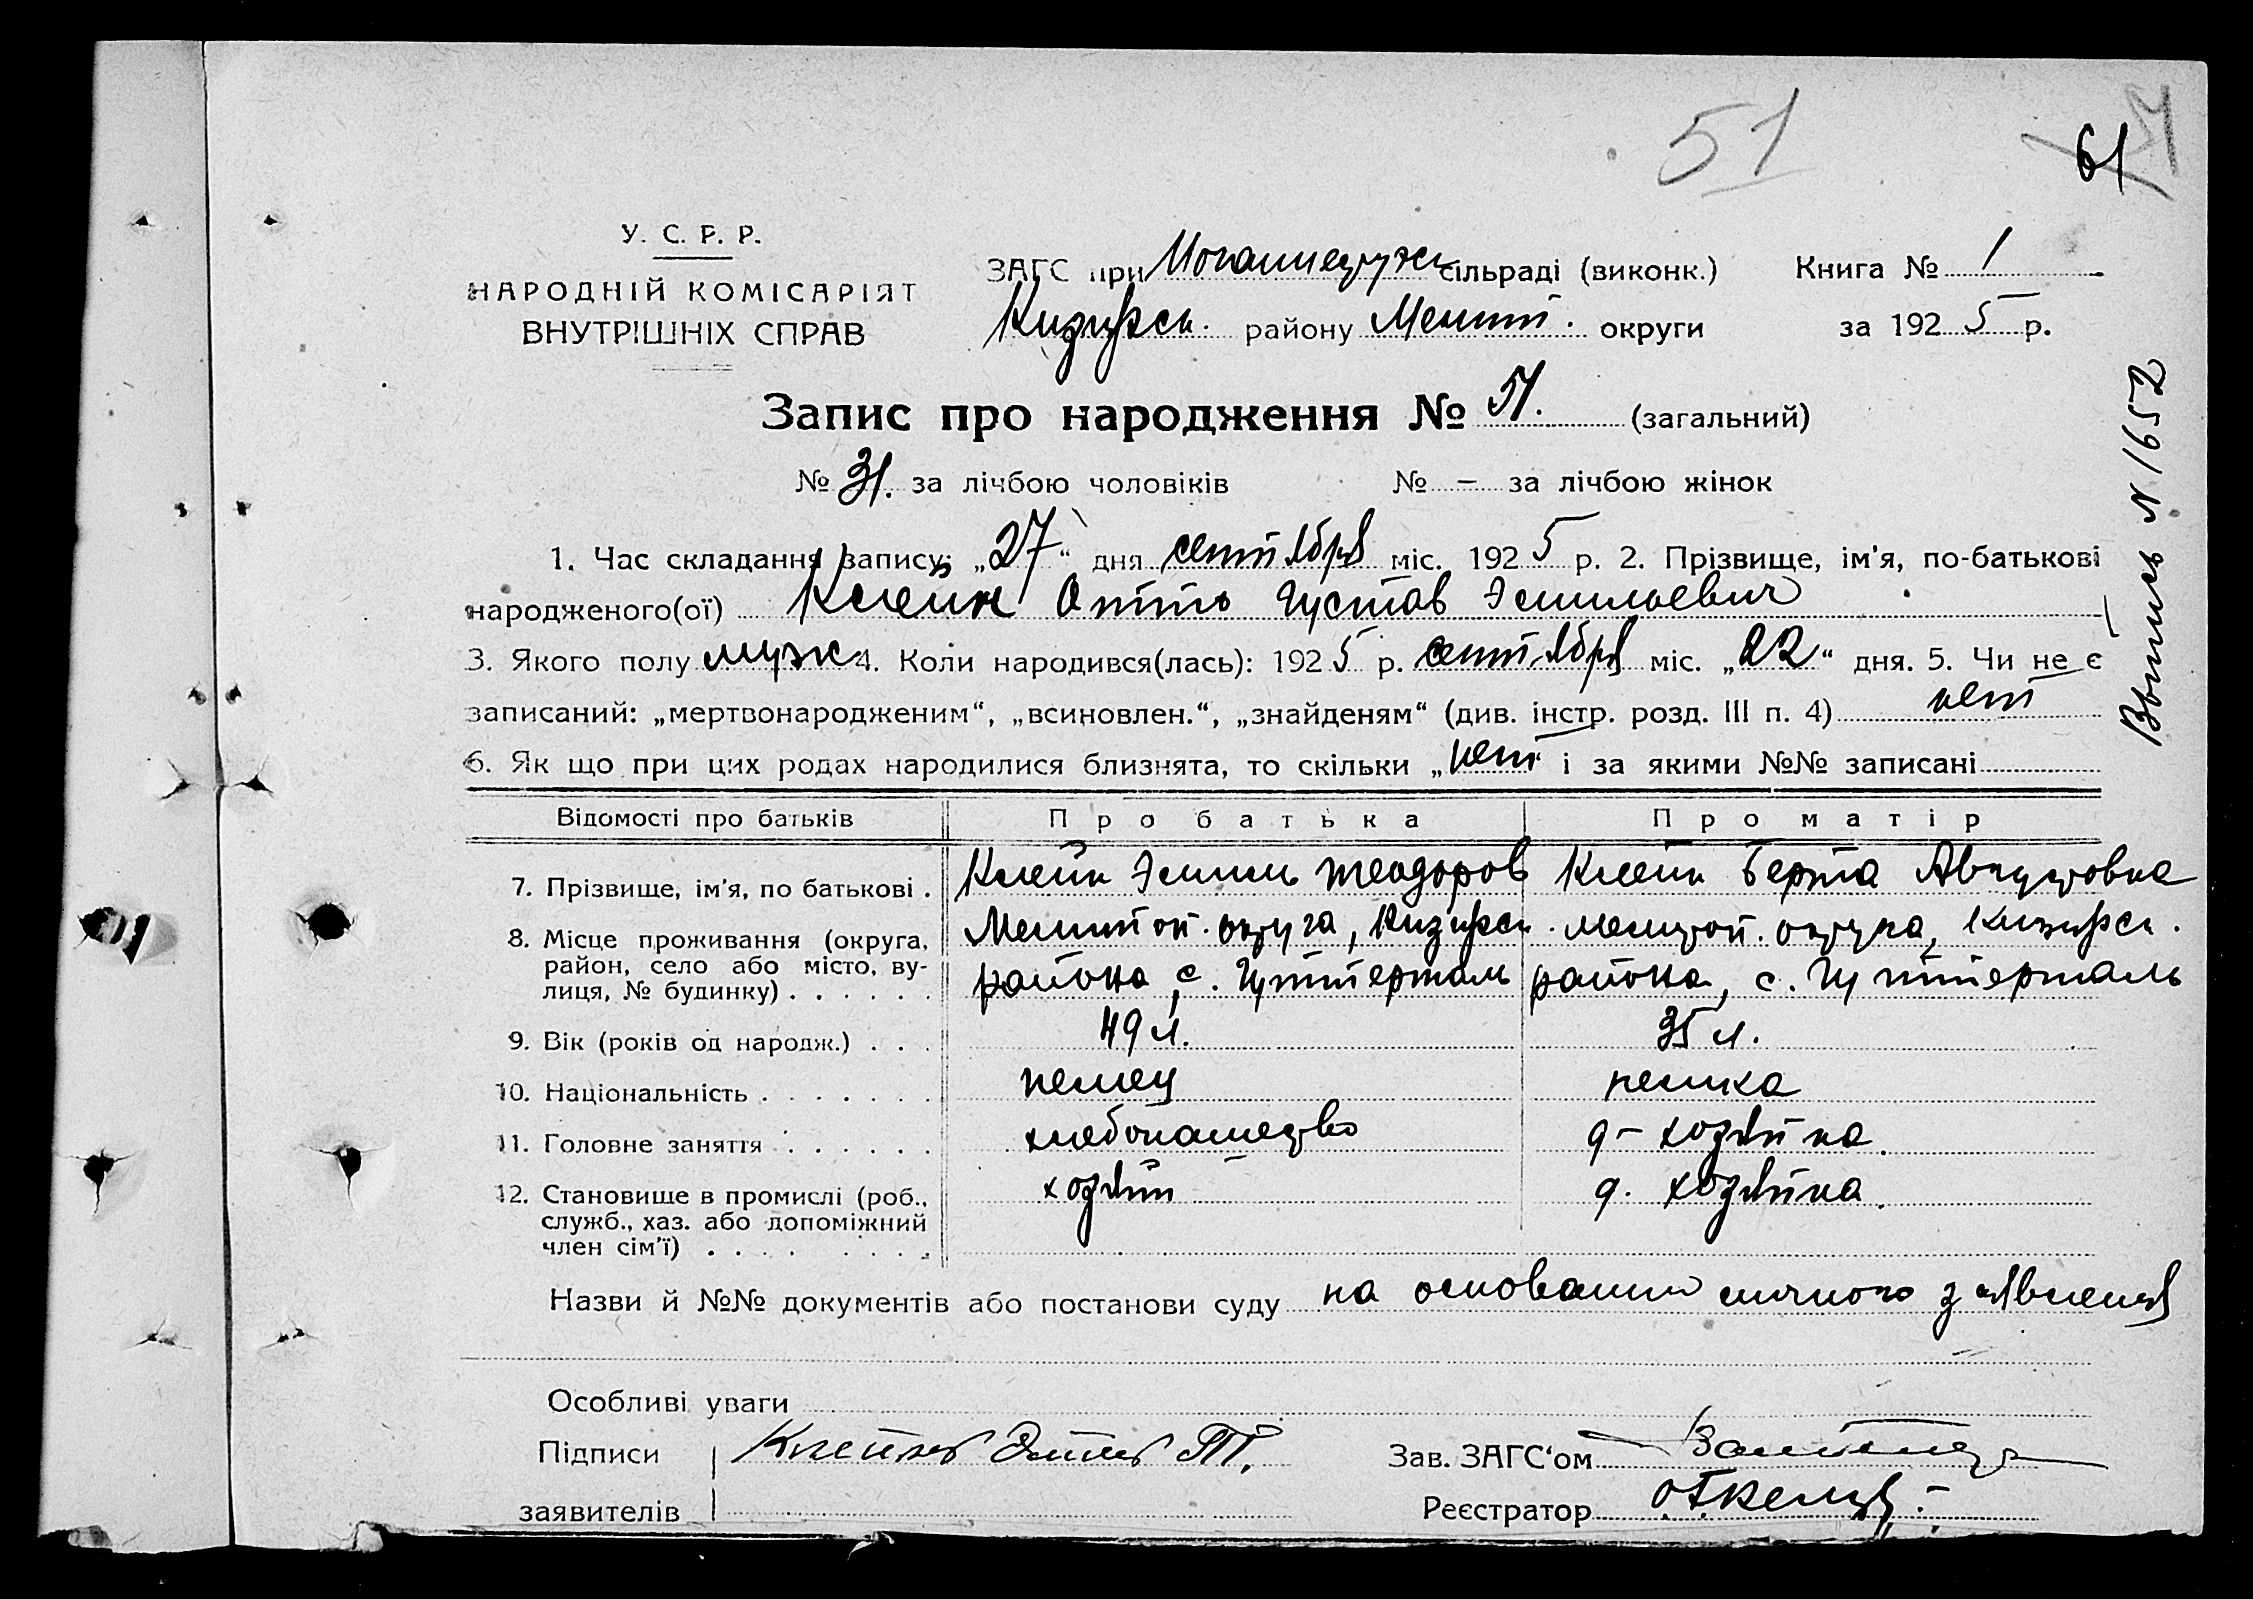 51
61
У. С. Р. Р.
НАРОДНІЙ КОМІСАРІЯТ
ВНУТРІШНІХ СПРАВ
ЗАГС при сільраді (виконк.) Книга № 1
району округи за 192 5 р.
Запис про народження № 51. (загальний)
№ 31. за лічбою чоловіків № – за лічбою жінок
Выпись N 1652
1. Час складання запису: „27“ дня сентября міс. 192 5 р. 2. Прізвище, ім'я, по-батькові
народженого(ої) Клейн Отто Густав Эмильевич
3. Якого полу муж 4. Коли народився(лась): 192 5 р. сентября міс. „22“ дня. 5. Чи не є
записаний: „мертвонародженим“, „всиновлен.“, „знайденям“ (див. інстр. розд. III п. 4) нет
6. Як що при цих родах народилися близнята, то скільки „нет“ і за якими №№ записані
Відомості про батьків Про батька Про матір
7. Прізвище, ім'я, по батькові . Клейн Эмиль Теодоров Клейн Берта Августовна
8. Місце проживання (округа, район, село або місто, вулиця, № будинку) . . . . . . Мелитоп. округа, района, с. Гуттерталь Мелитоп. округа, района, с. Гуттерталь
9. Вік (років од народж.) . . . 49 л. 35 л.
10. Національність . . . . . . . немец немка
11. Головне заняття . . . . . . хлебопашество д-хозяйка
12. Становище в промислі (роб., служб., хаз. або допоміжний член сім'ї) . . . . . . . . хозяин д. хозяйка
Назви й №№ документів або постанови суду на основании личного заявления
Особливі уваги
Підписи Клейн Эмиль Т. Зав. ЗАГС'ом
заявителів Реєстратор